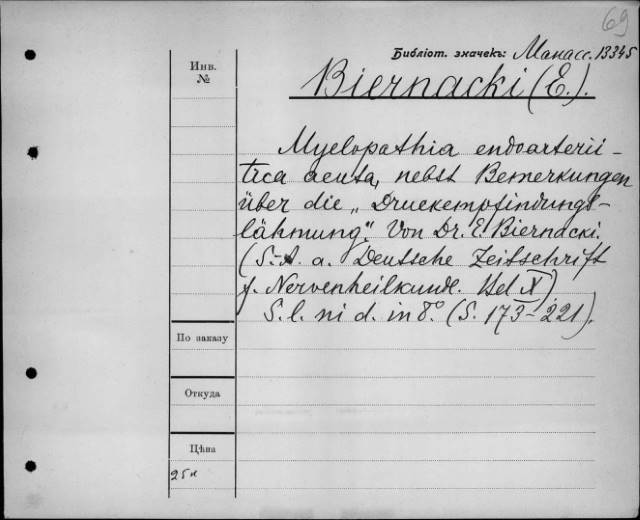 69
Библіот. значекъ: Манасс. 13345
Инв.
№
Biernacki (E.).
Myelopathia endoarterii-
tica acuta, nebst Bemerkungen
über die „Druckempfindungs-
lähmung". Von Dr. E. Biernacki.
(S.-A. a. Deutsche Zeitschrift
f. Nervenheilkunde. Bd X)
S. l. ni d. in 8° (S. 173-221).
По заказу
Откуда
Цѣна
25 к